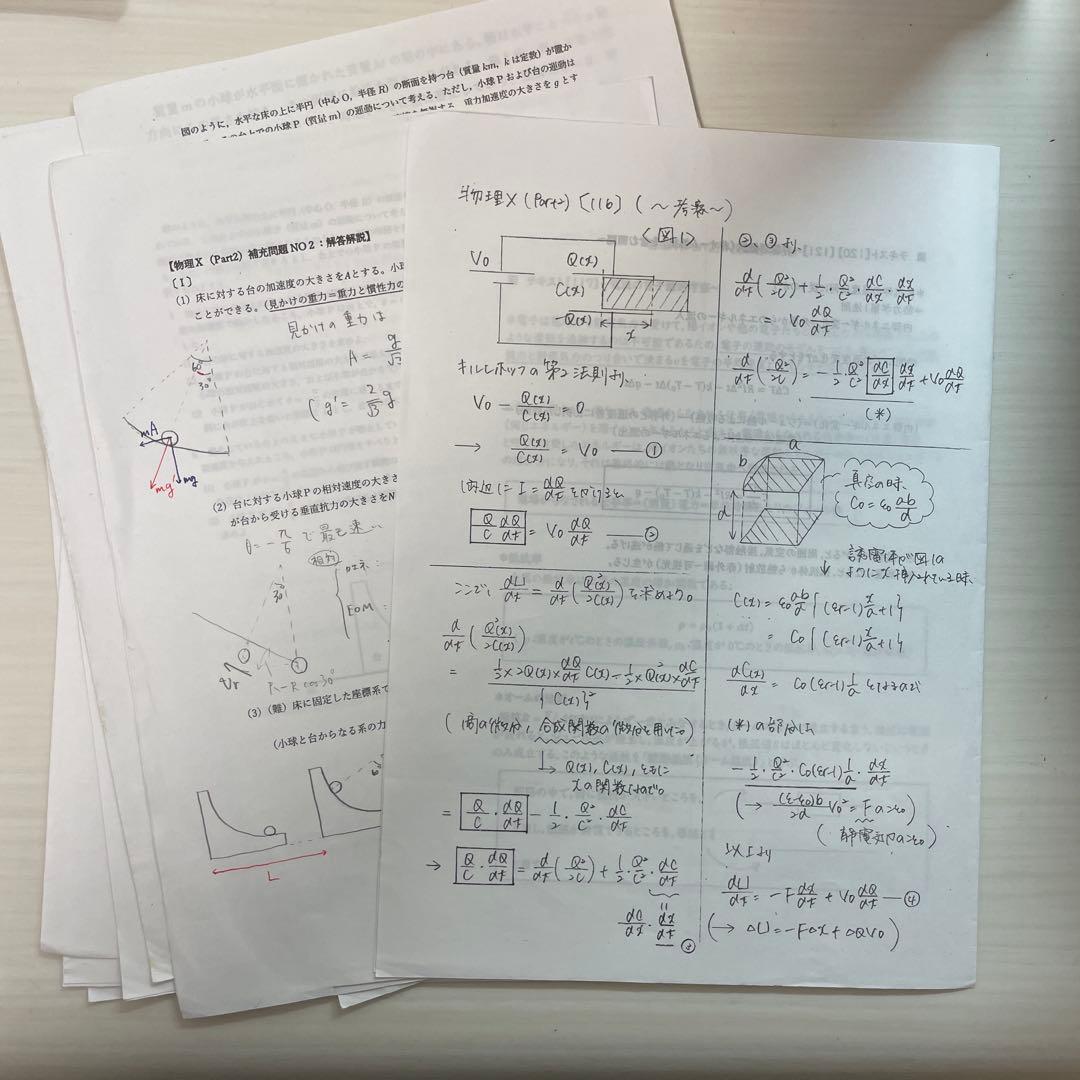 図のように，水平な床の上に半円（中心 O，半径 R）の断面を持つ台（質量 km, k は定数）が置か
の台上での小球 P（質量 m）の運動について考える．ただし，小球 P および台の運動は
重力加速度の大きさを g とす
【物理X（Part2）補充問題 NO 2：解答解説】
〔1〕
(1) 床に対する台の加速度の大きさをAとする。小球
ことができる。(見かけの重力＝重力と慣性力の
見かけの重力は
A = g/√3
( g' = 2/√3 g
60°
30°
mA
mg'
mg
(2) 台に対する小球Pの相対速度の大きさ
が台から受ける垂直抗力の大きさをN
θ = -π/6 で最も速い
相対
力エネ：
EOM：
30°
Vr
R-Rcos30°
(3)（難）床に固定した座標系で
(小球と台からなる系の力
L
物理X (Part2) [116] (～考察～)
<図1>
V₀
Q(x)
C(x)
-Q(x)
x
キルヒホッフの第2法則より、
V₀ - Q(x)/C(x) = 0
→ Q(x)/C(x) = V₀ ―― ①
両辺に I = dQ/dt をかけると
Q/C dQ/dt = V₀ dQ/dt ―― ②
ここで、dU/dt = d/dt (Q²(x)/2C(x)) を求めよう。
d/dt (Q²(x)/2C(x))
= 1/2 × 2Q(x) × dQ/dt C(x) - 1/2 × Q²(x) × dC/dt / {C(x)}²
(商の微分, 合成関数の微分を用いた。)
↳ Q(x), C(x), ともに
xの関数なので。
= Q/C · dQ/dt - 1/2 · Q²/C² · dC/dt
→ Q/C · dQ/dt = d/dt (Q²/2C) + 1/2 · Q²/C² · dC/dt
dC/dx · dx/dt ③
②、③より、
d/dt (Q²/2C) + 1/2 · Q²/C² · dC/dx · dx/dt
= V₀ dQ/dt
d/dt (Q²/2C) = -1/2 · Q²/C² dC/dx dx/dt + V₀ dQ/dt
(*)
a
b
d
真空の時、
C₀ = ε₀ ab/d
誘電体が図1の
ように x 挿入されている時、
C(x) = ε₀ ab/d {(εr-1) x/a + 1}
= C₀ {(εr-1) x/a + 1}
dC(x)/dx = C₀(εr-1) 1/a となるので
(*) の部分は
-1/2 · Q²/C² · C₀(εr-1) 1/a · dx/dt
(→ (ε-ε₀)b/2d V₀² = F のこと)
(静電気力のこと)
以上より
dU/dt = -F dx/dt + V₀ dQ/dt ―― ④
(→ ΔU = -FΔx + ΔQV₀)